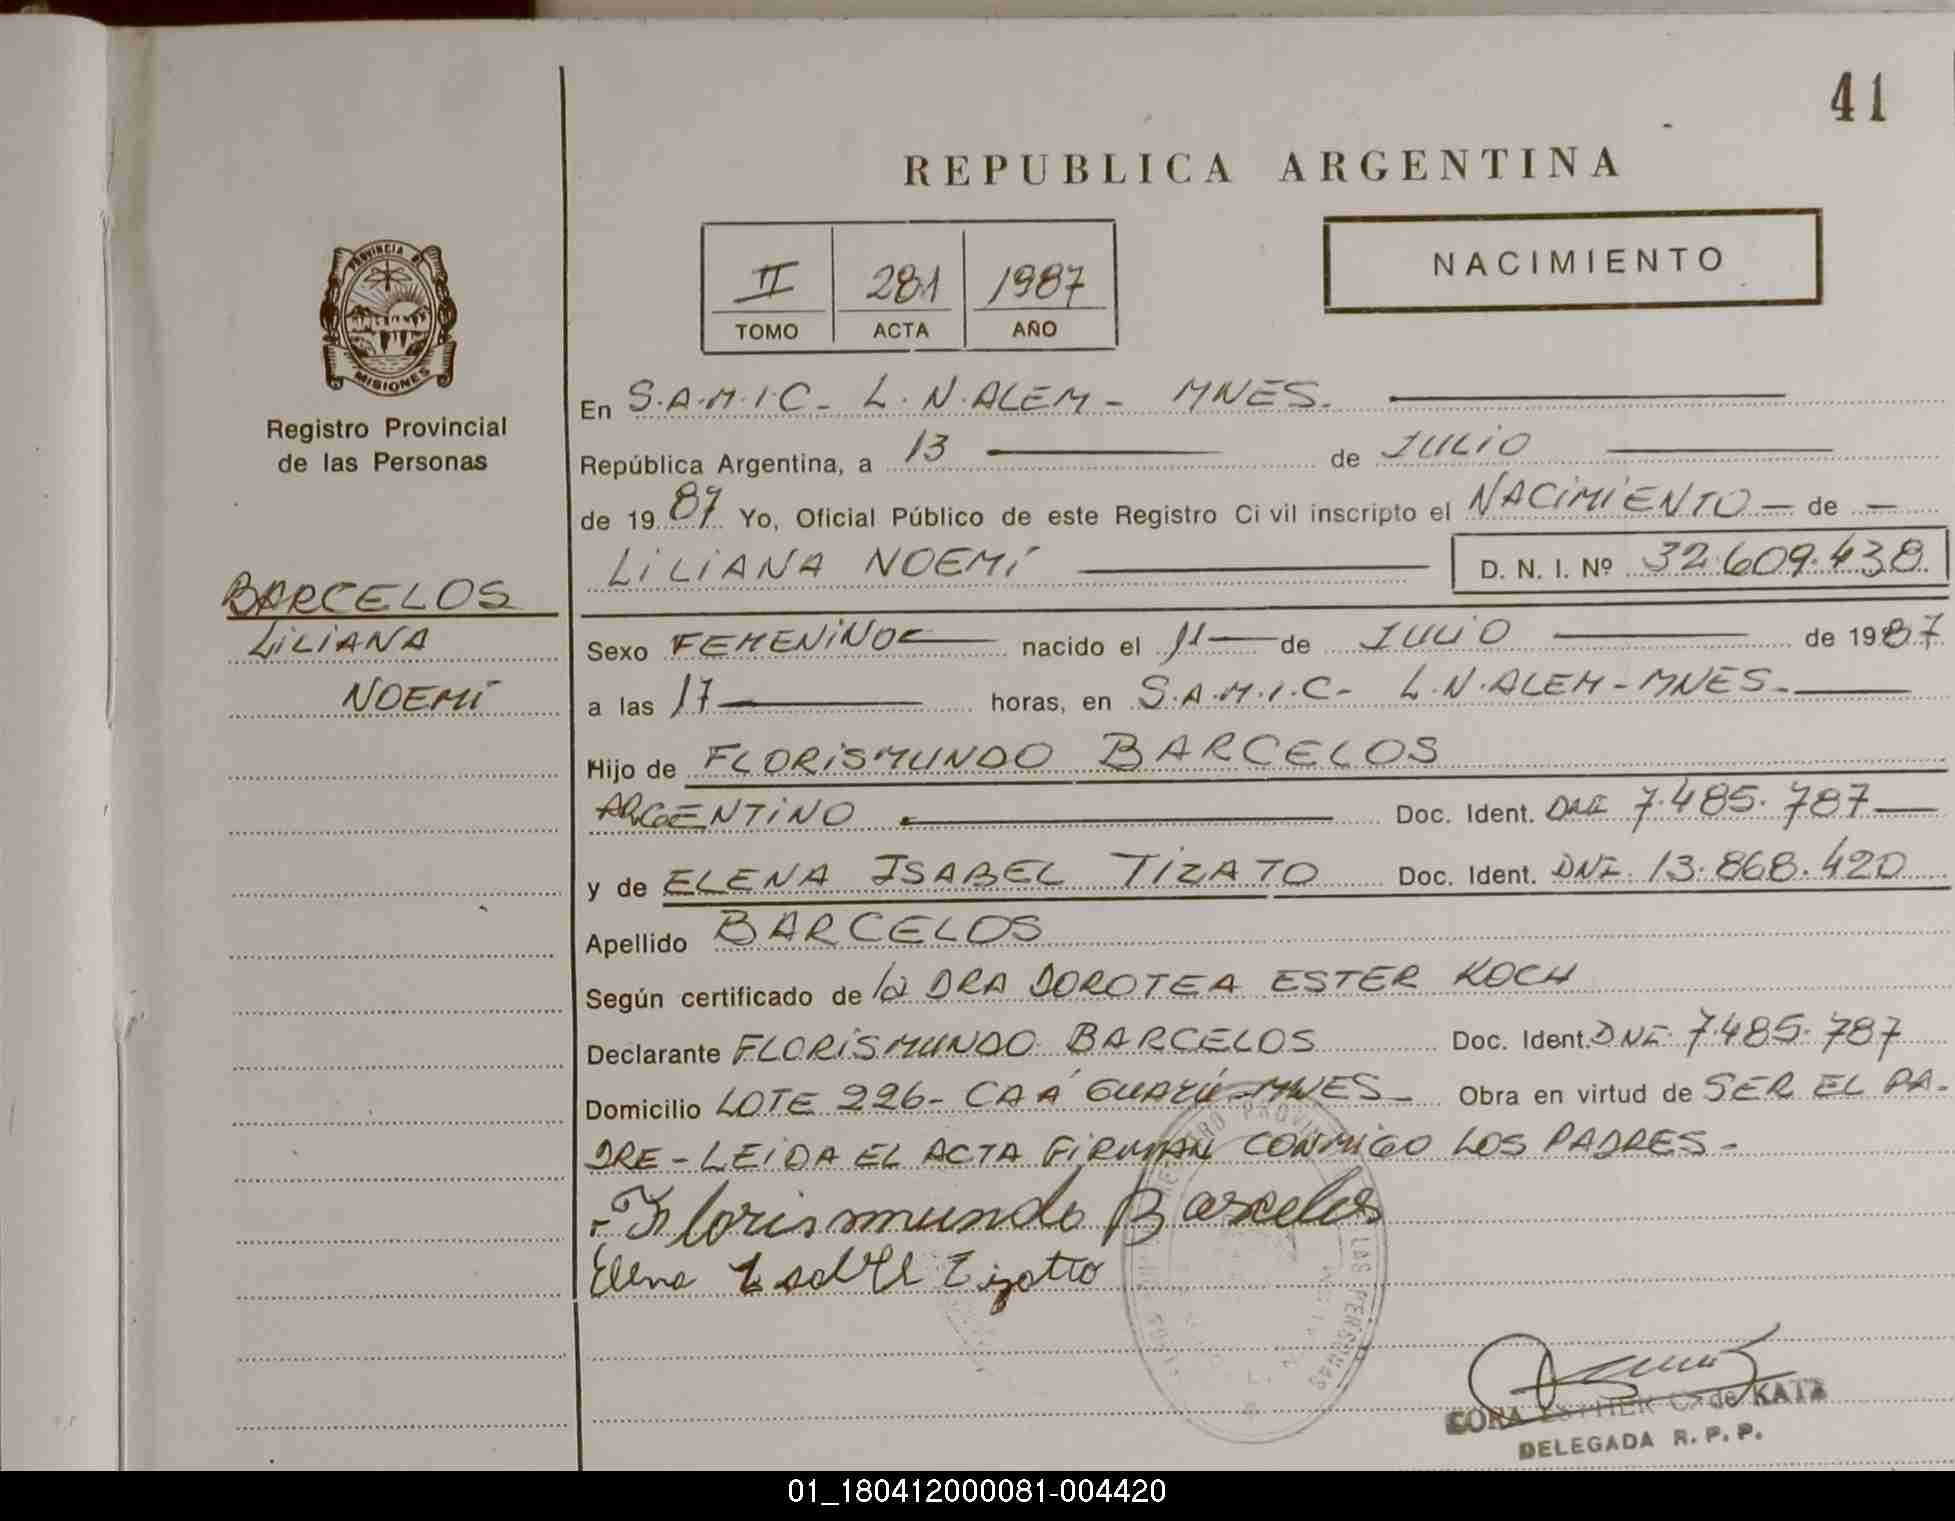 41
REPUBLICA ARGENTINA
II 281 1987
TOMO ACTA AÑO
NACIMIENTO
PROVINCIA DE
MISIONES
Registro Provincial
de las Personas
BARCELOS
LILIANA
NOEMÍ
En S.A.M.I.C - L.N.ALEM - MNES.
República Argentina, a 13 de JULIO
de 1987 Yo, Oficial Público de este Registro Civil inscripto el NACIMIENTO — de —
LILIANA NOEMÍ D. N. I. Nº 32.609.438
Sexo FEMENINO nacido el 11 de JULIO de 1987
a las 17 horas, en S.A.M.I.C - L.N.ALEM - MNES.
Hijo de FLORISMUNDO BARCELOS
ARGENTINO Doc. Ident. DNI 7.485.787
y de ELENA ISABEL TIZATO Doc. Ident. DNI. 13.868.420
Apellido BARCELOS
Según certificado de la DRA DOROTEA ESTER KOCH
Declarante FLORISMUNDO BARCELOS Doc. Ident. DNI 7.485.787
Domicilio LOTE 226 - CAÁ GUAZÚ - MNES - Obra en virtud de SER EL PA-
DRE - LEIDA EL ACTA FIRMAN CONMIGO LOS PADRES -
Florismundo Barcelos
Elena Isabel Tizatto
ESTHER C. de KATZ
DELEGADA R. P. P.
01_180412000081-004420